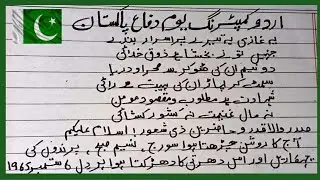 اردو کمپئرنگ یوم دفاع پاکستان
یہ غازی یہ تیرے پراسرار بندے
جنہیں تو نے بخشا ہے ذوق خدائی
دو نیم ان کی ٹھوکر سے صحرا و دریا
سمٹ کر پہاڑ ان کی ہیبت سے رائی
شہادت ہے مطلوب و مقصود مومن
نہ مال غنیمت نہ کشور کشائی
صدر والا قدر و حاضرین ذی شعور! اسلام علیکم
آج کا روشن چڑھتا ہوا سورج، نسیم صبح، پرندوں کی
اور اس دھرتی کا دھڑکتا ہوا ہر دل 6 ستمبر 1965